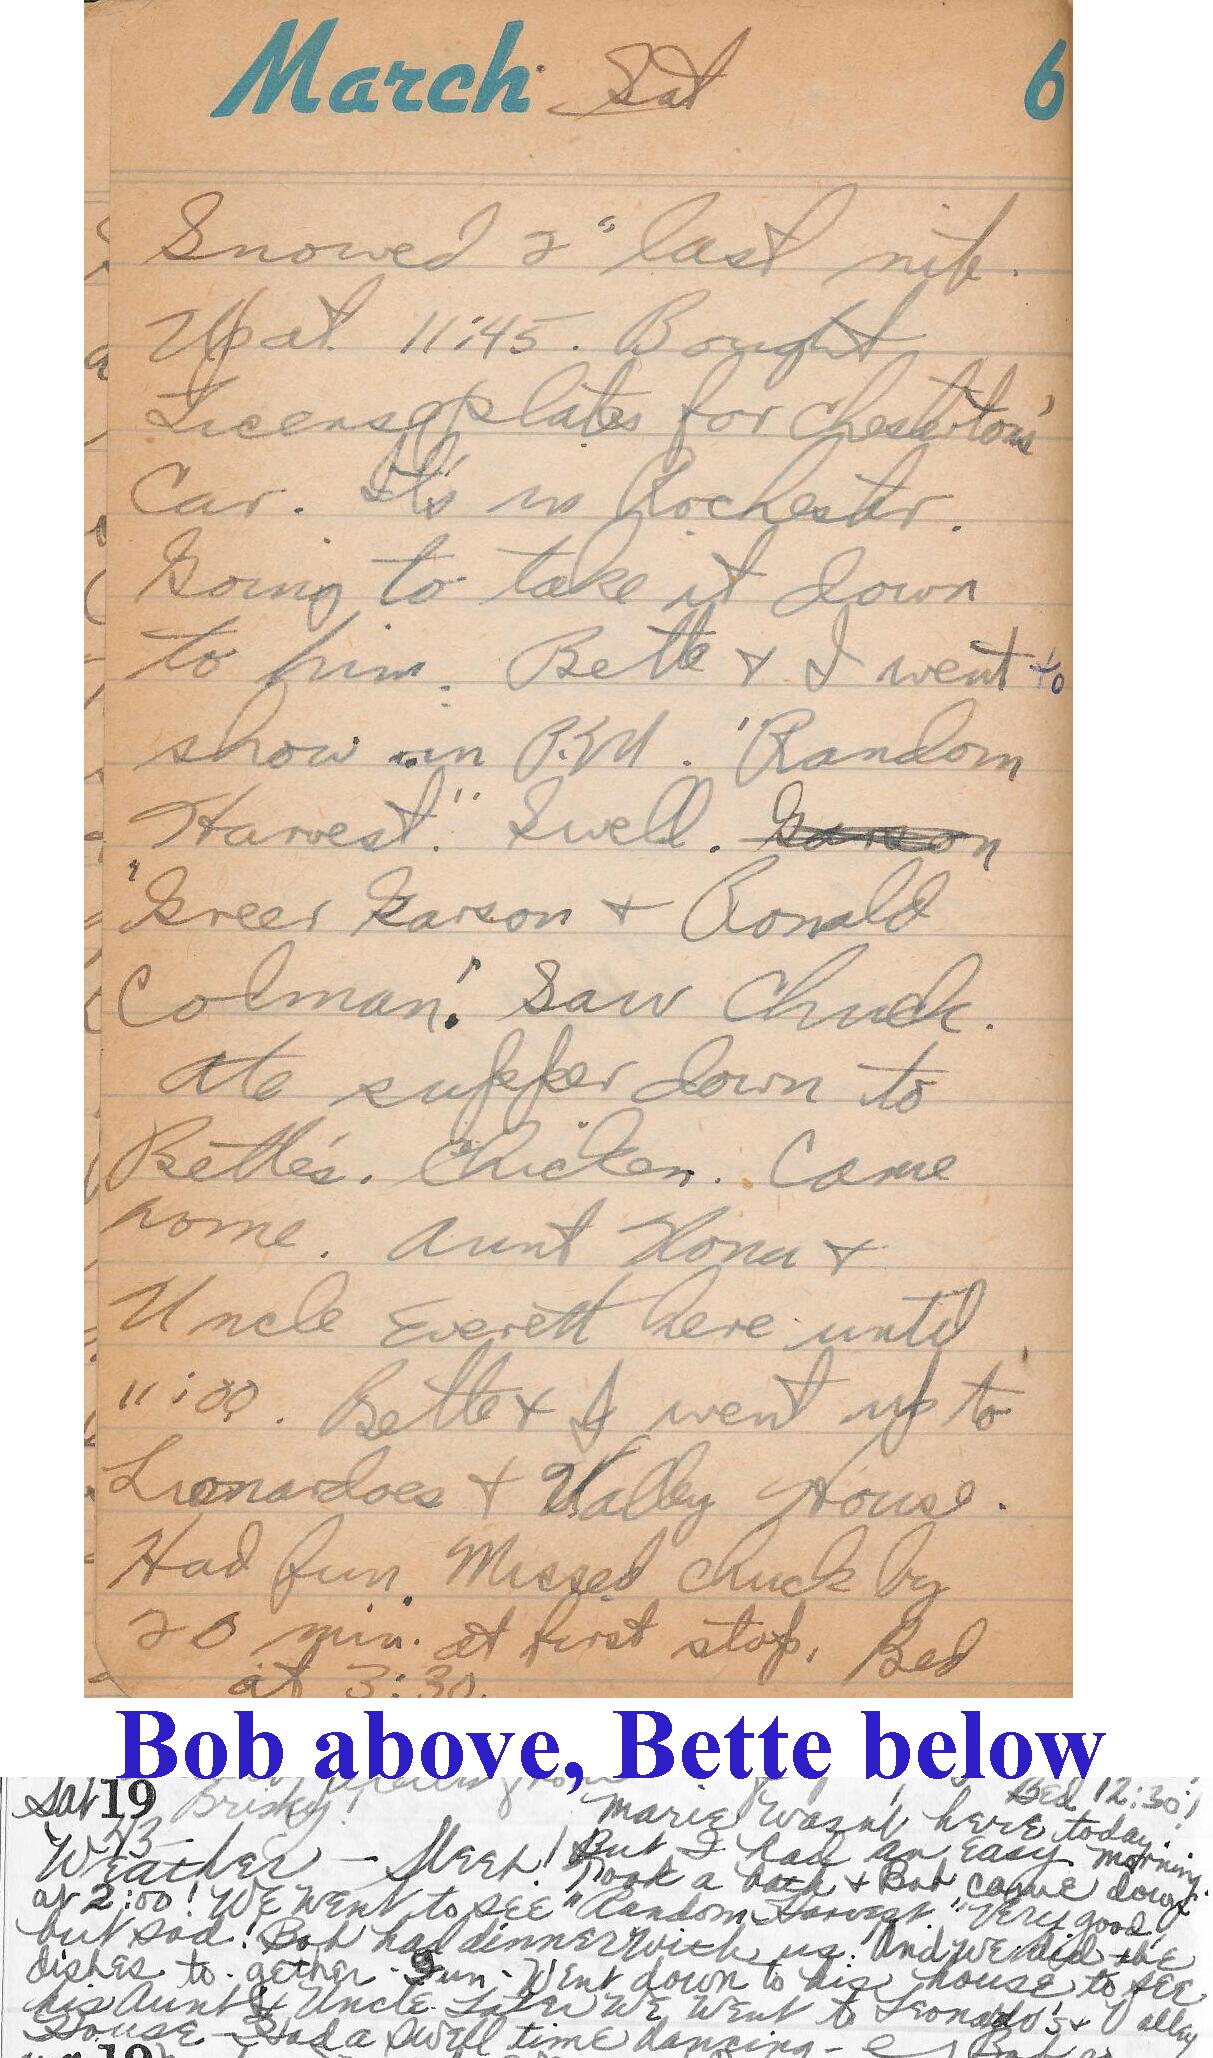 March Sat 6
Snowed 2" last nite.
Up at 11:45. Bought
License plates for Chesterton's
Car. It's in Rochester.
Going to take it down
to him. Bette & I went to
show in P.M. "Random
Harvest." Swell. Garson
"Greer Garson & Ronald
Colman". Saw Chuck.
Ate supper down to
Bette's. Chicken. Came
home. Aunt Nona &
Uncle Everett here until
11:00. Bette & I went up to
Leonardoes & Valley House.
Had fun. Missed Chuck by
20 min. at first stop. Bed
at 3:30.
Bob above, Bette below
Bed 12:30!
Sat 19 Brisky!
43
Marie wasn't here today.
Weather - Meek! But I had an easy morning.
Took a bath & Bob came down
at 2:00! We went to see "Random Harvest." Very good,
but sad! Bob had dinner with us. And we did the
dishes to-gether - Fun - Went down to his house to see
his Aunt & Uncle. Later we went to Leonardo's & Valley
House - Had a swell time dancing -
19